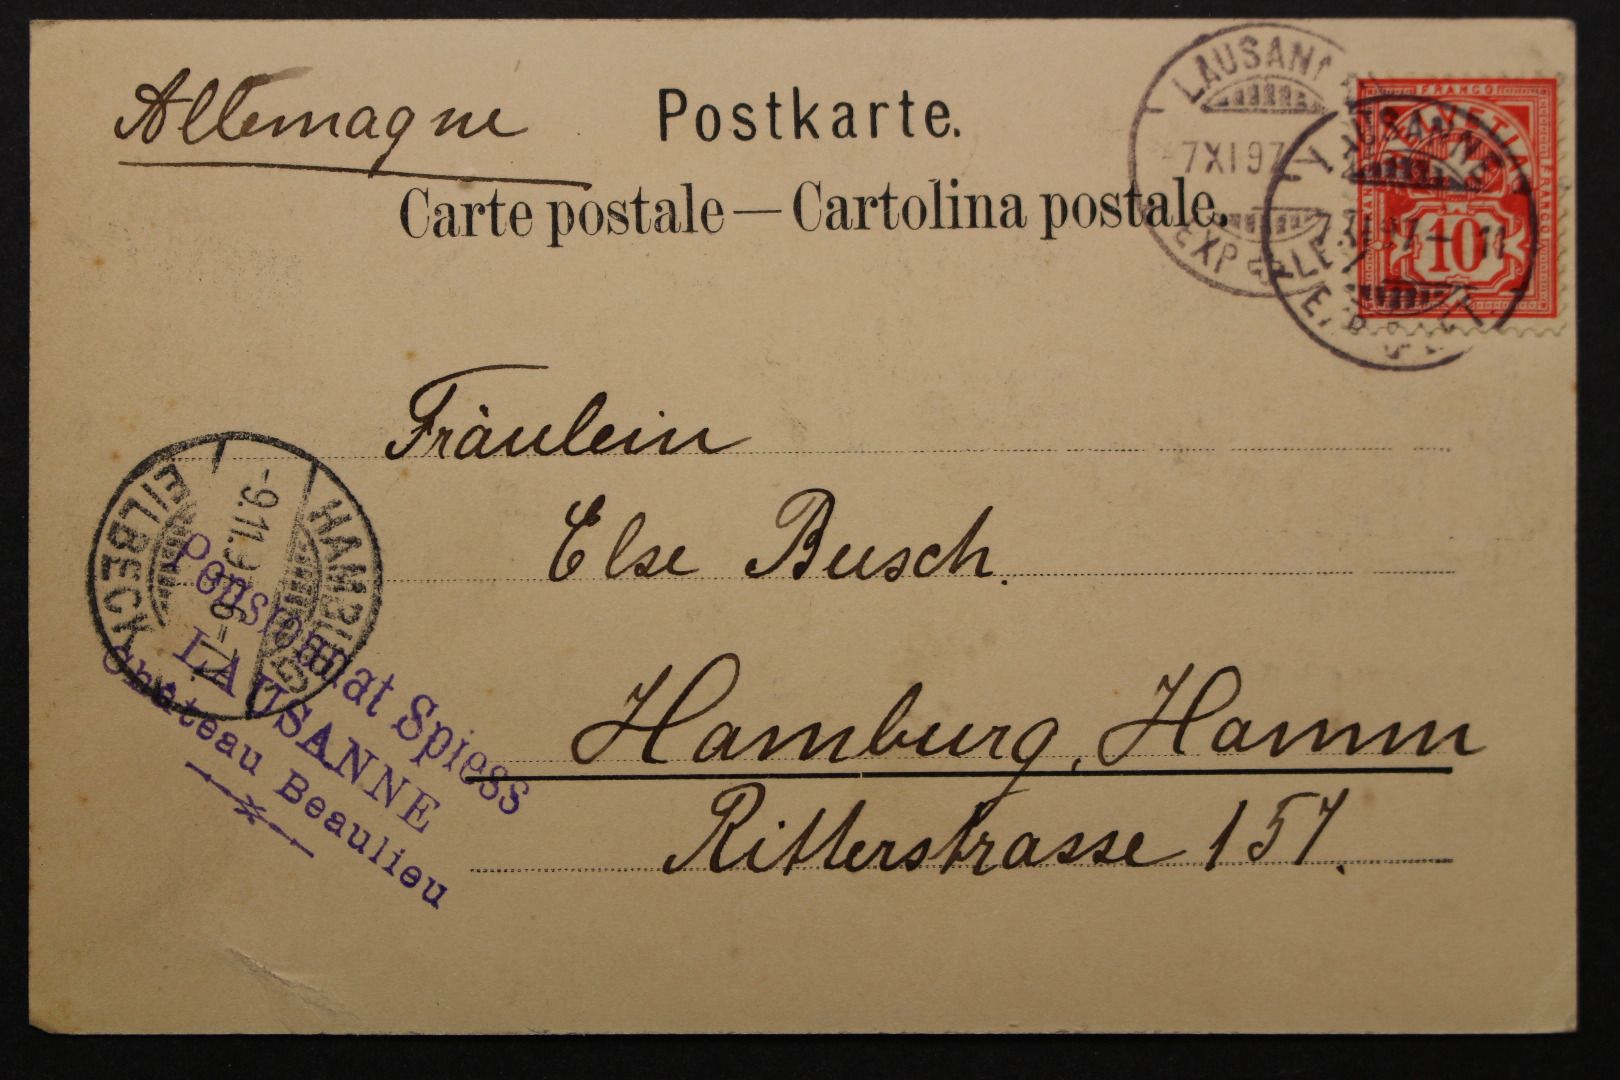 Allemagne
Postkarte.
Carte postale — Cartolina postale.
LAUSANNE
7 XI 97
EXP. LET
LAUSANNE
7 XI 97 — 11
FRANCO
HELVETIA
10
Fräulein
Else Busch.
Hamburg, Hamm
Ritterstrasse 157.
HAMBURG
-9.11.97
6-7
EILBECK
Pensionnat Spiess
LAUSANNE
Château Beaulieu